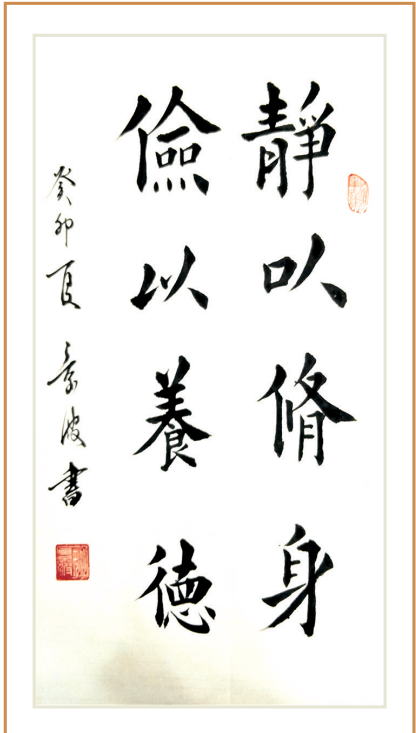 靜以脩身
儉以養德
癸卯夏 景波書